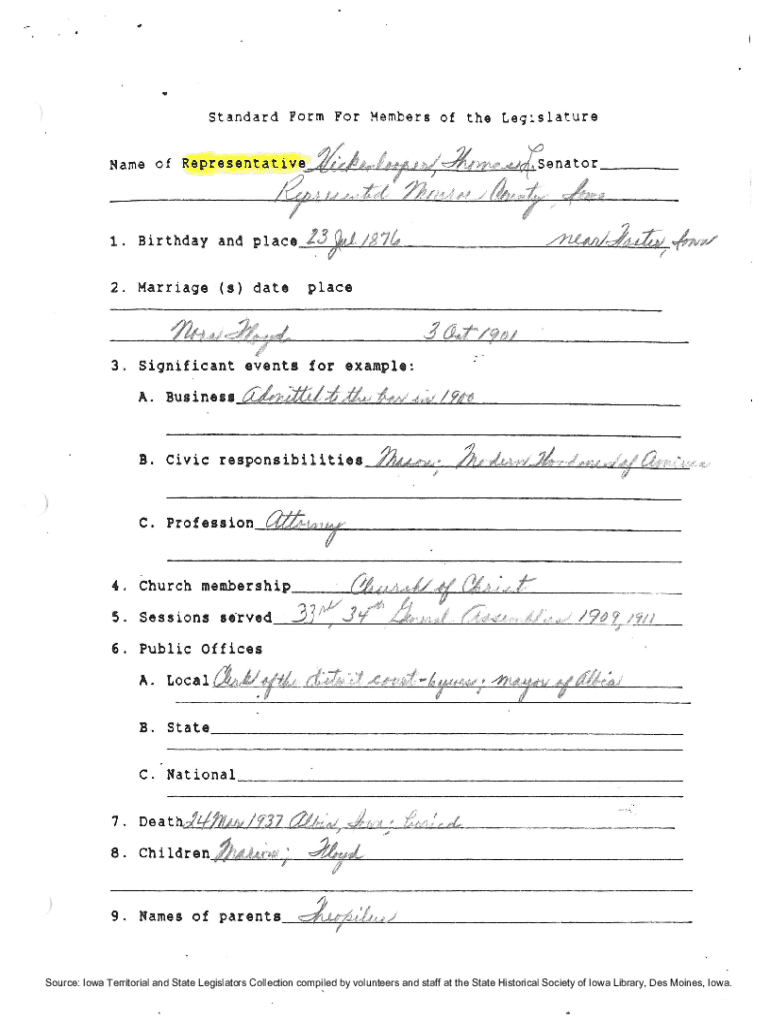 Standard Form For Members of the Legislature
Name of Representative Hickenlooper, Thomas L Senator
Represented Monroe County, Iowa
1. Birthday and place 23 Jul 1876 near Foster, Iowa
2. Marriage (s) date place
Nora Floyd 3 Oct 1901
3. Significant events for example:
A. Business Admitted to the bar in 1900
B. Civic responsibilities Mason; Modern Woodmen of America
C. Profession Attorney
4. Church membership Church of Christ
5. Sessions served 33rd, 34th General Assemblies 1909, 1911
6. Public Offices
A. Local Clerk of the district court - 6 years; mayor of Albia
B. State
C. National
7. Death 24 Mar 1937 Albia, Iowa; buried
8. Children Marion; Floyd
9. Names of parents Theopilus
Source: Iowa Territorial and State Legislators Collection compiled by volunteers and staff at the State Historical Society of Iowa Library, Des Moines, Iowa.